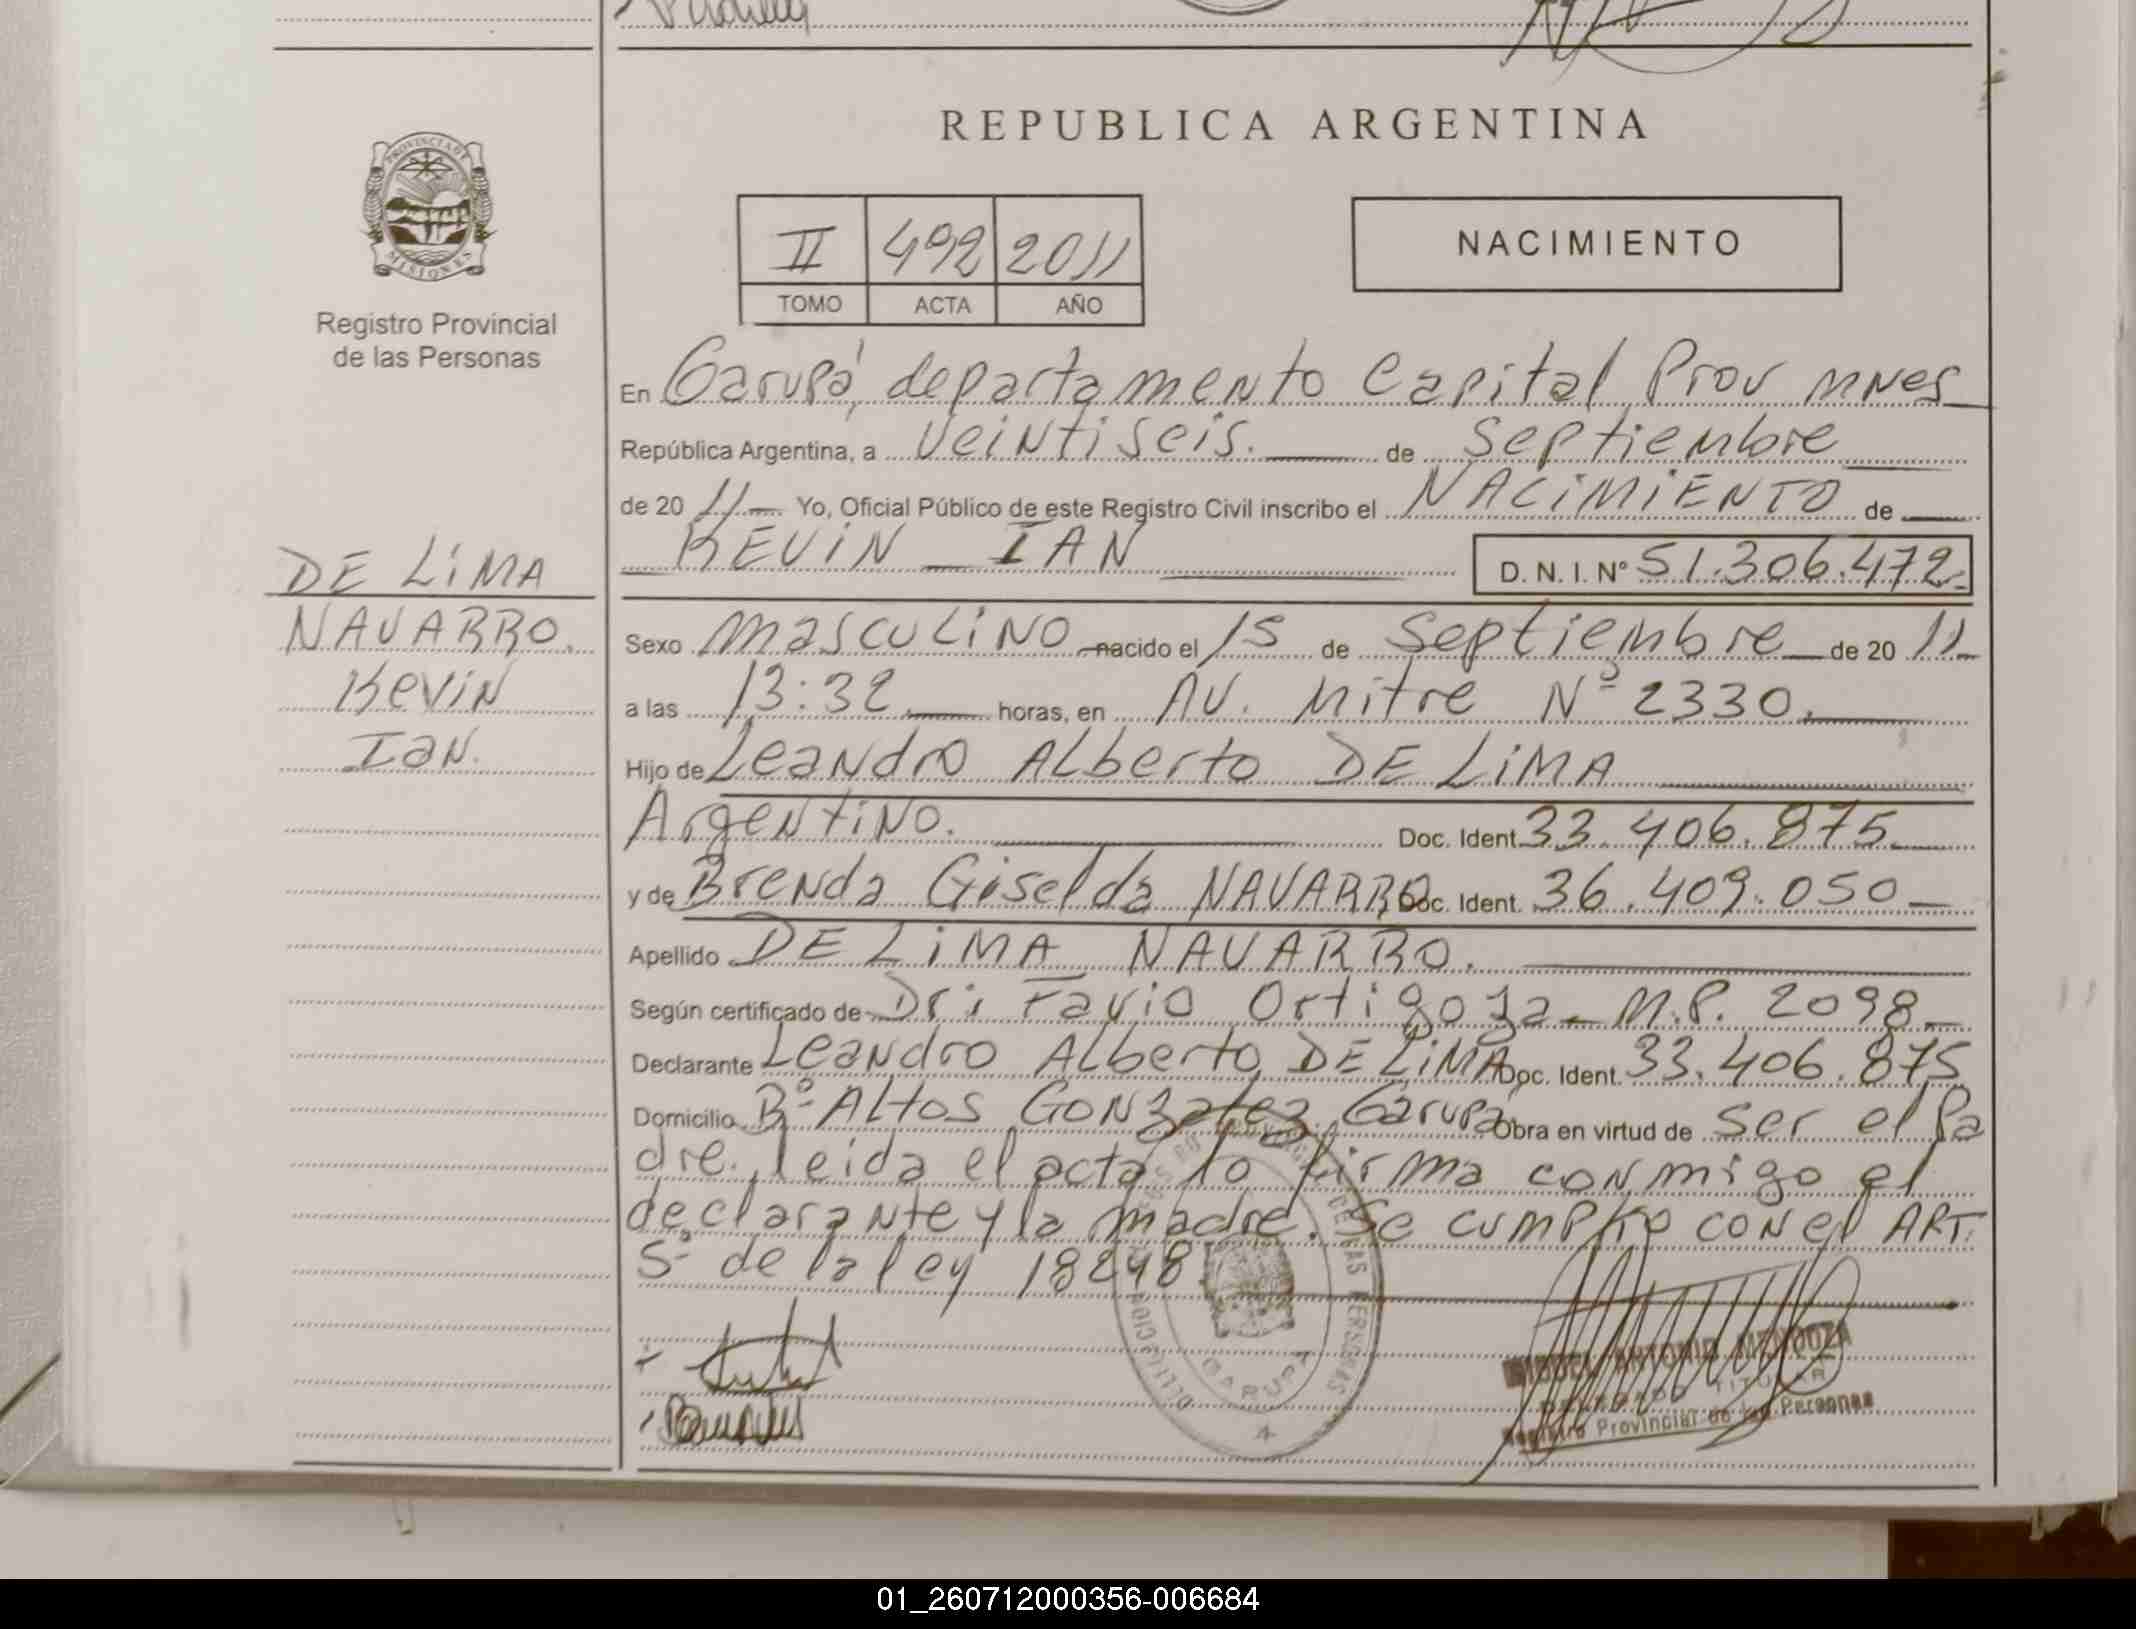 REPUBLICA ARGENTINA
PROVINCIA DE
MISIONES
Registro Provincial
de las Personas
II 492 2011
TOMO ACTA AÑO
NACIMIENTO
DE LIMA
NAVARRO.
Kevin
Ian.
En Garupá, departamento Capital Prov mnes
República Argentina, a veintiseis. de septiembre
de 20 11 Yo, Oficial Público de este Registro Civil inscribo el NACIMIENTO de
KEVIN IAN D. N. I. Nº 51.306.472.
Sexo masculino nacido el 15 de septiembre de 20 11
a las 13:32 horas, en AV. Mitre Nº 2330.
Hijo de Leandro Alberto DE LIMA
Argentino. Doc. Ident. 33.406.875
y de Brenda Giselda NAVARRO Doc. Ident. 36.409.050
Apellido DE LIMA NAVARRO.
Según certificado de Dr: Favio Ortigoza M.P. 2098
Declarante Leandro Alberto DE LIMA Doc. Ident. 33.406.875
Domicilio Bº ALtos Gonzalez Garupá Obra en virtud de ser el Pa
dre. leida el acta lo firma conmigo el
declarante y la madre. Se cumplio con el ART.
5º de la ley 18248
DE LAS PERSONAS
GARUPA
MIGUEL ANTONIO MENDOZA
DELEGADO TITULAR
Registro Provincial de las Personas
01_260712000356-006684